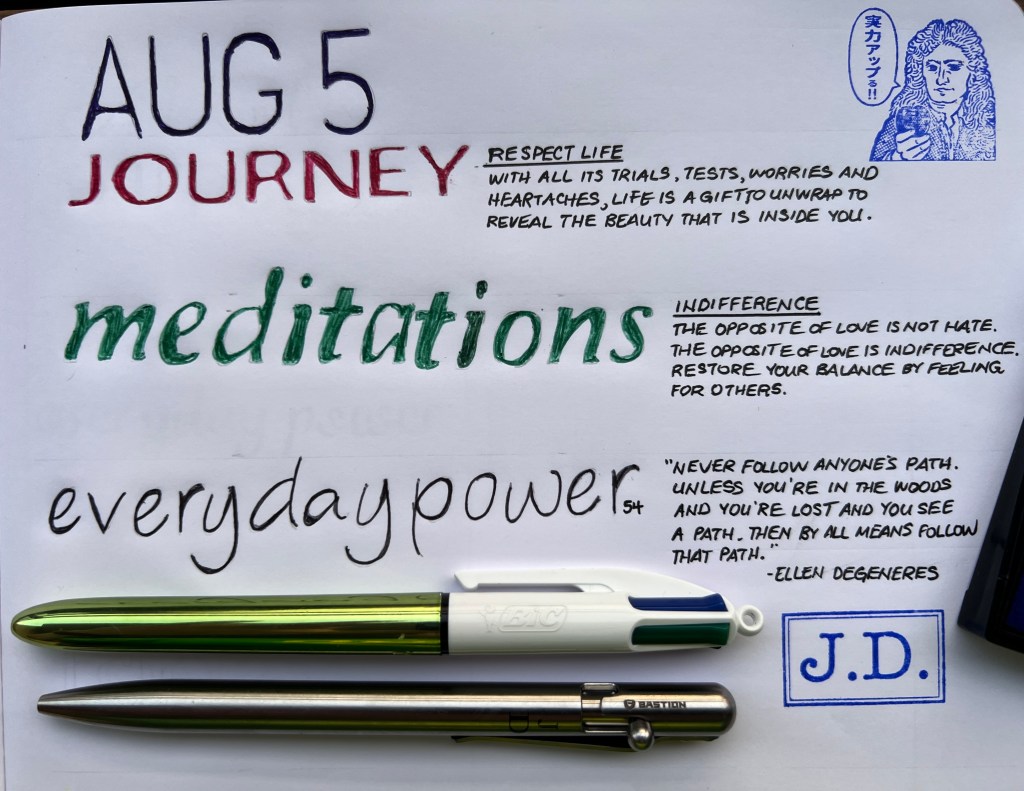 AUG 5
実力アップする!!
JOURNEY
RESPECT LIFE
WITH ALL ITS TRIALS, TESTS, WORRIES AND
HEARTACHES, LIFE IS A GIFT TO UNWRAP TO
REVEAL THE BEAUTY THAT IS INSIDE YOU.
meditations
INDIFFERENCE
THE OPPOSITE OF LOVE IS NOT HATE.
THE OPPOSITE OF LOVE IS INDIFFERENCE.
RESTORE YOUR BALANCE BY FEELING
FOR OTHERS.
everydaypower 54
"NEVER FOLLOW ANYONE'S PATH.
UNLESS YOU'RE IN THE WOODS
AND YOU'RE LOST AND YOU SEE
A PATH. THEN BY ALL MEANS FOLLOW
THAT PATH."
-ELLEN DEGENERES
BIC
J.D.
BASTION